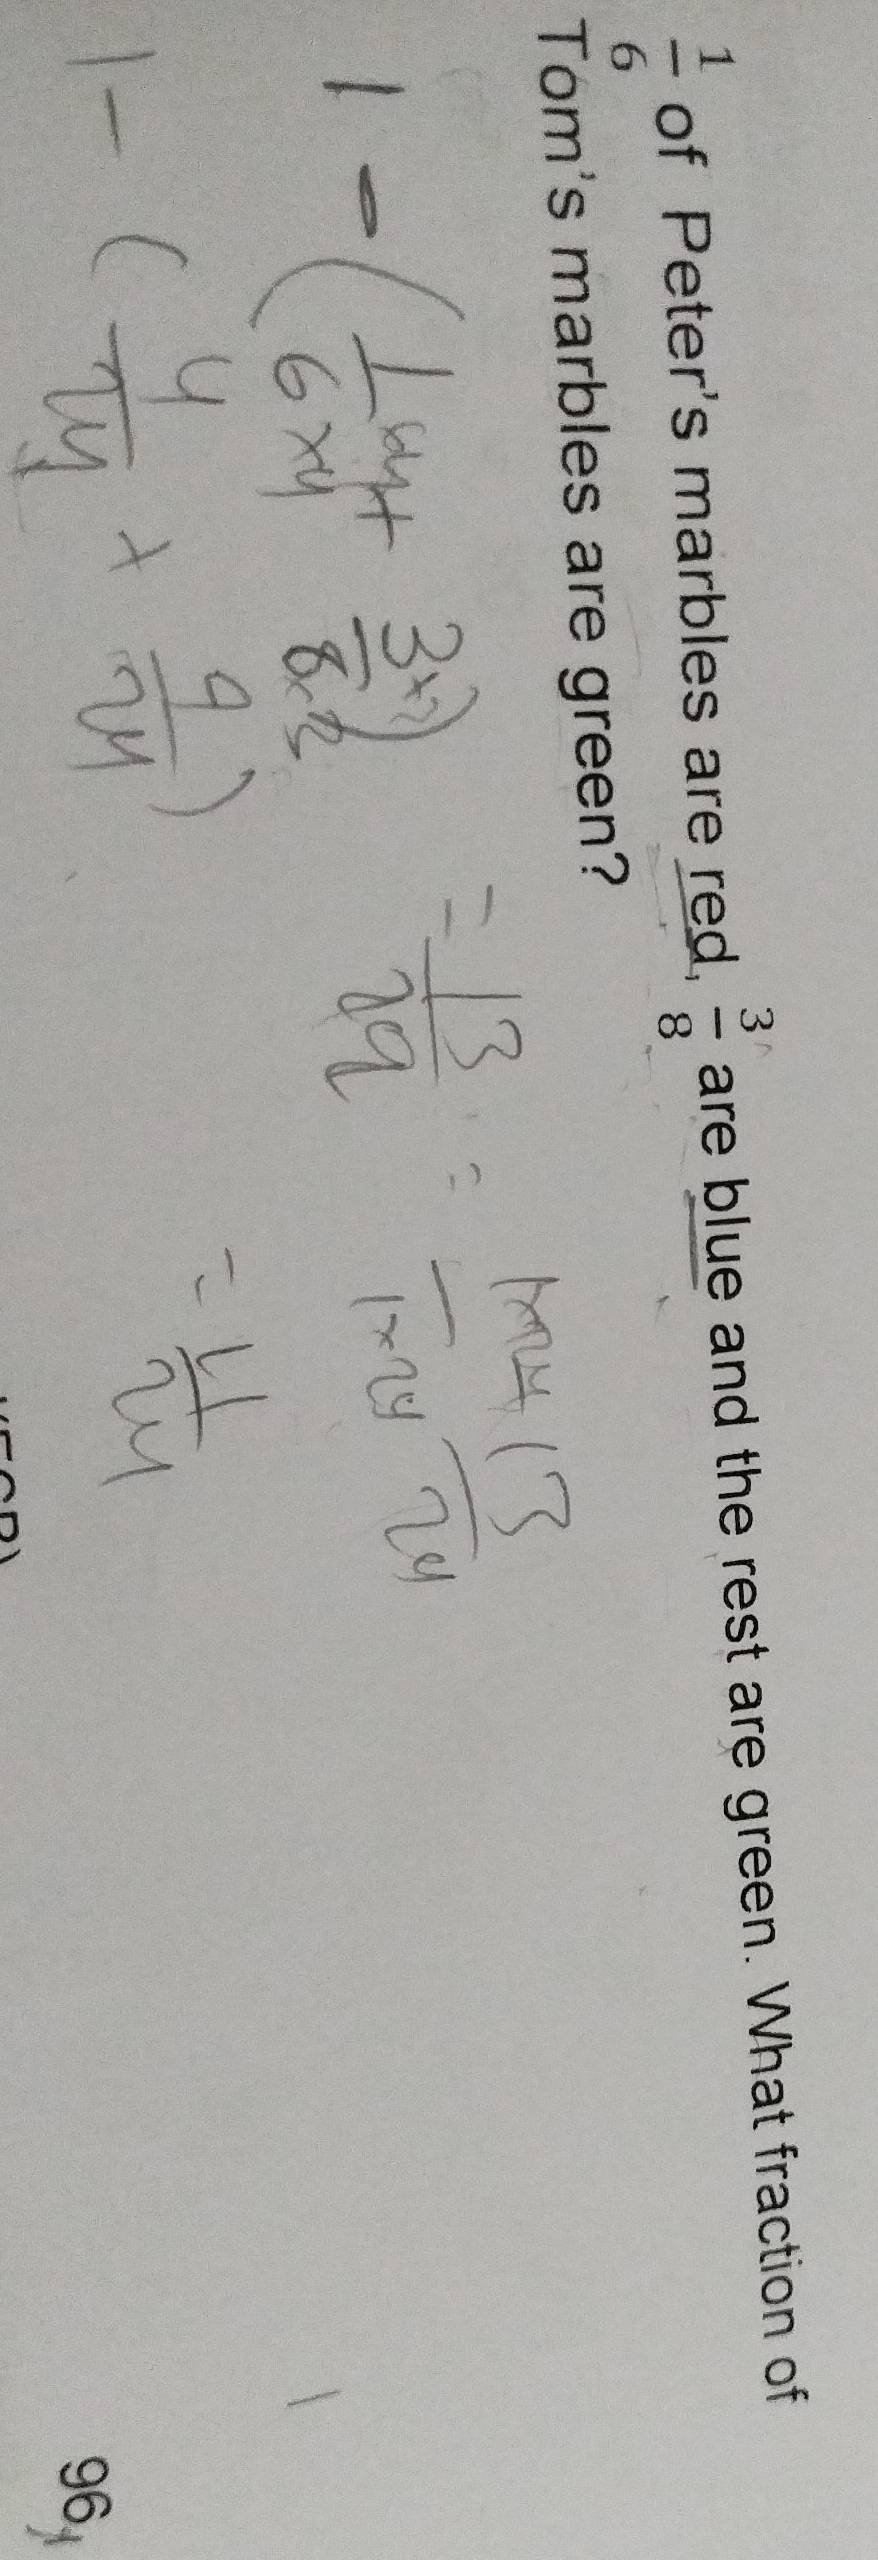 1/6 of Peter's marbles are red, 3/8 are blue and the rest are green. What fraction of
Tom's marbles are green?
1 - (1×4/6×4 + 3×3/8×3) = 13/24 = 1×24/1×24 - 13/24
1 - (4/24 + 9/24) = 11/24
96